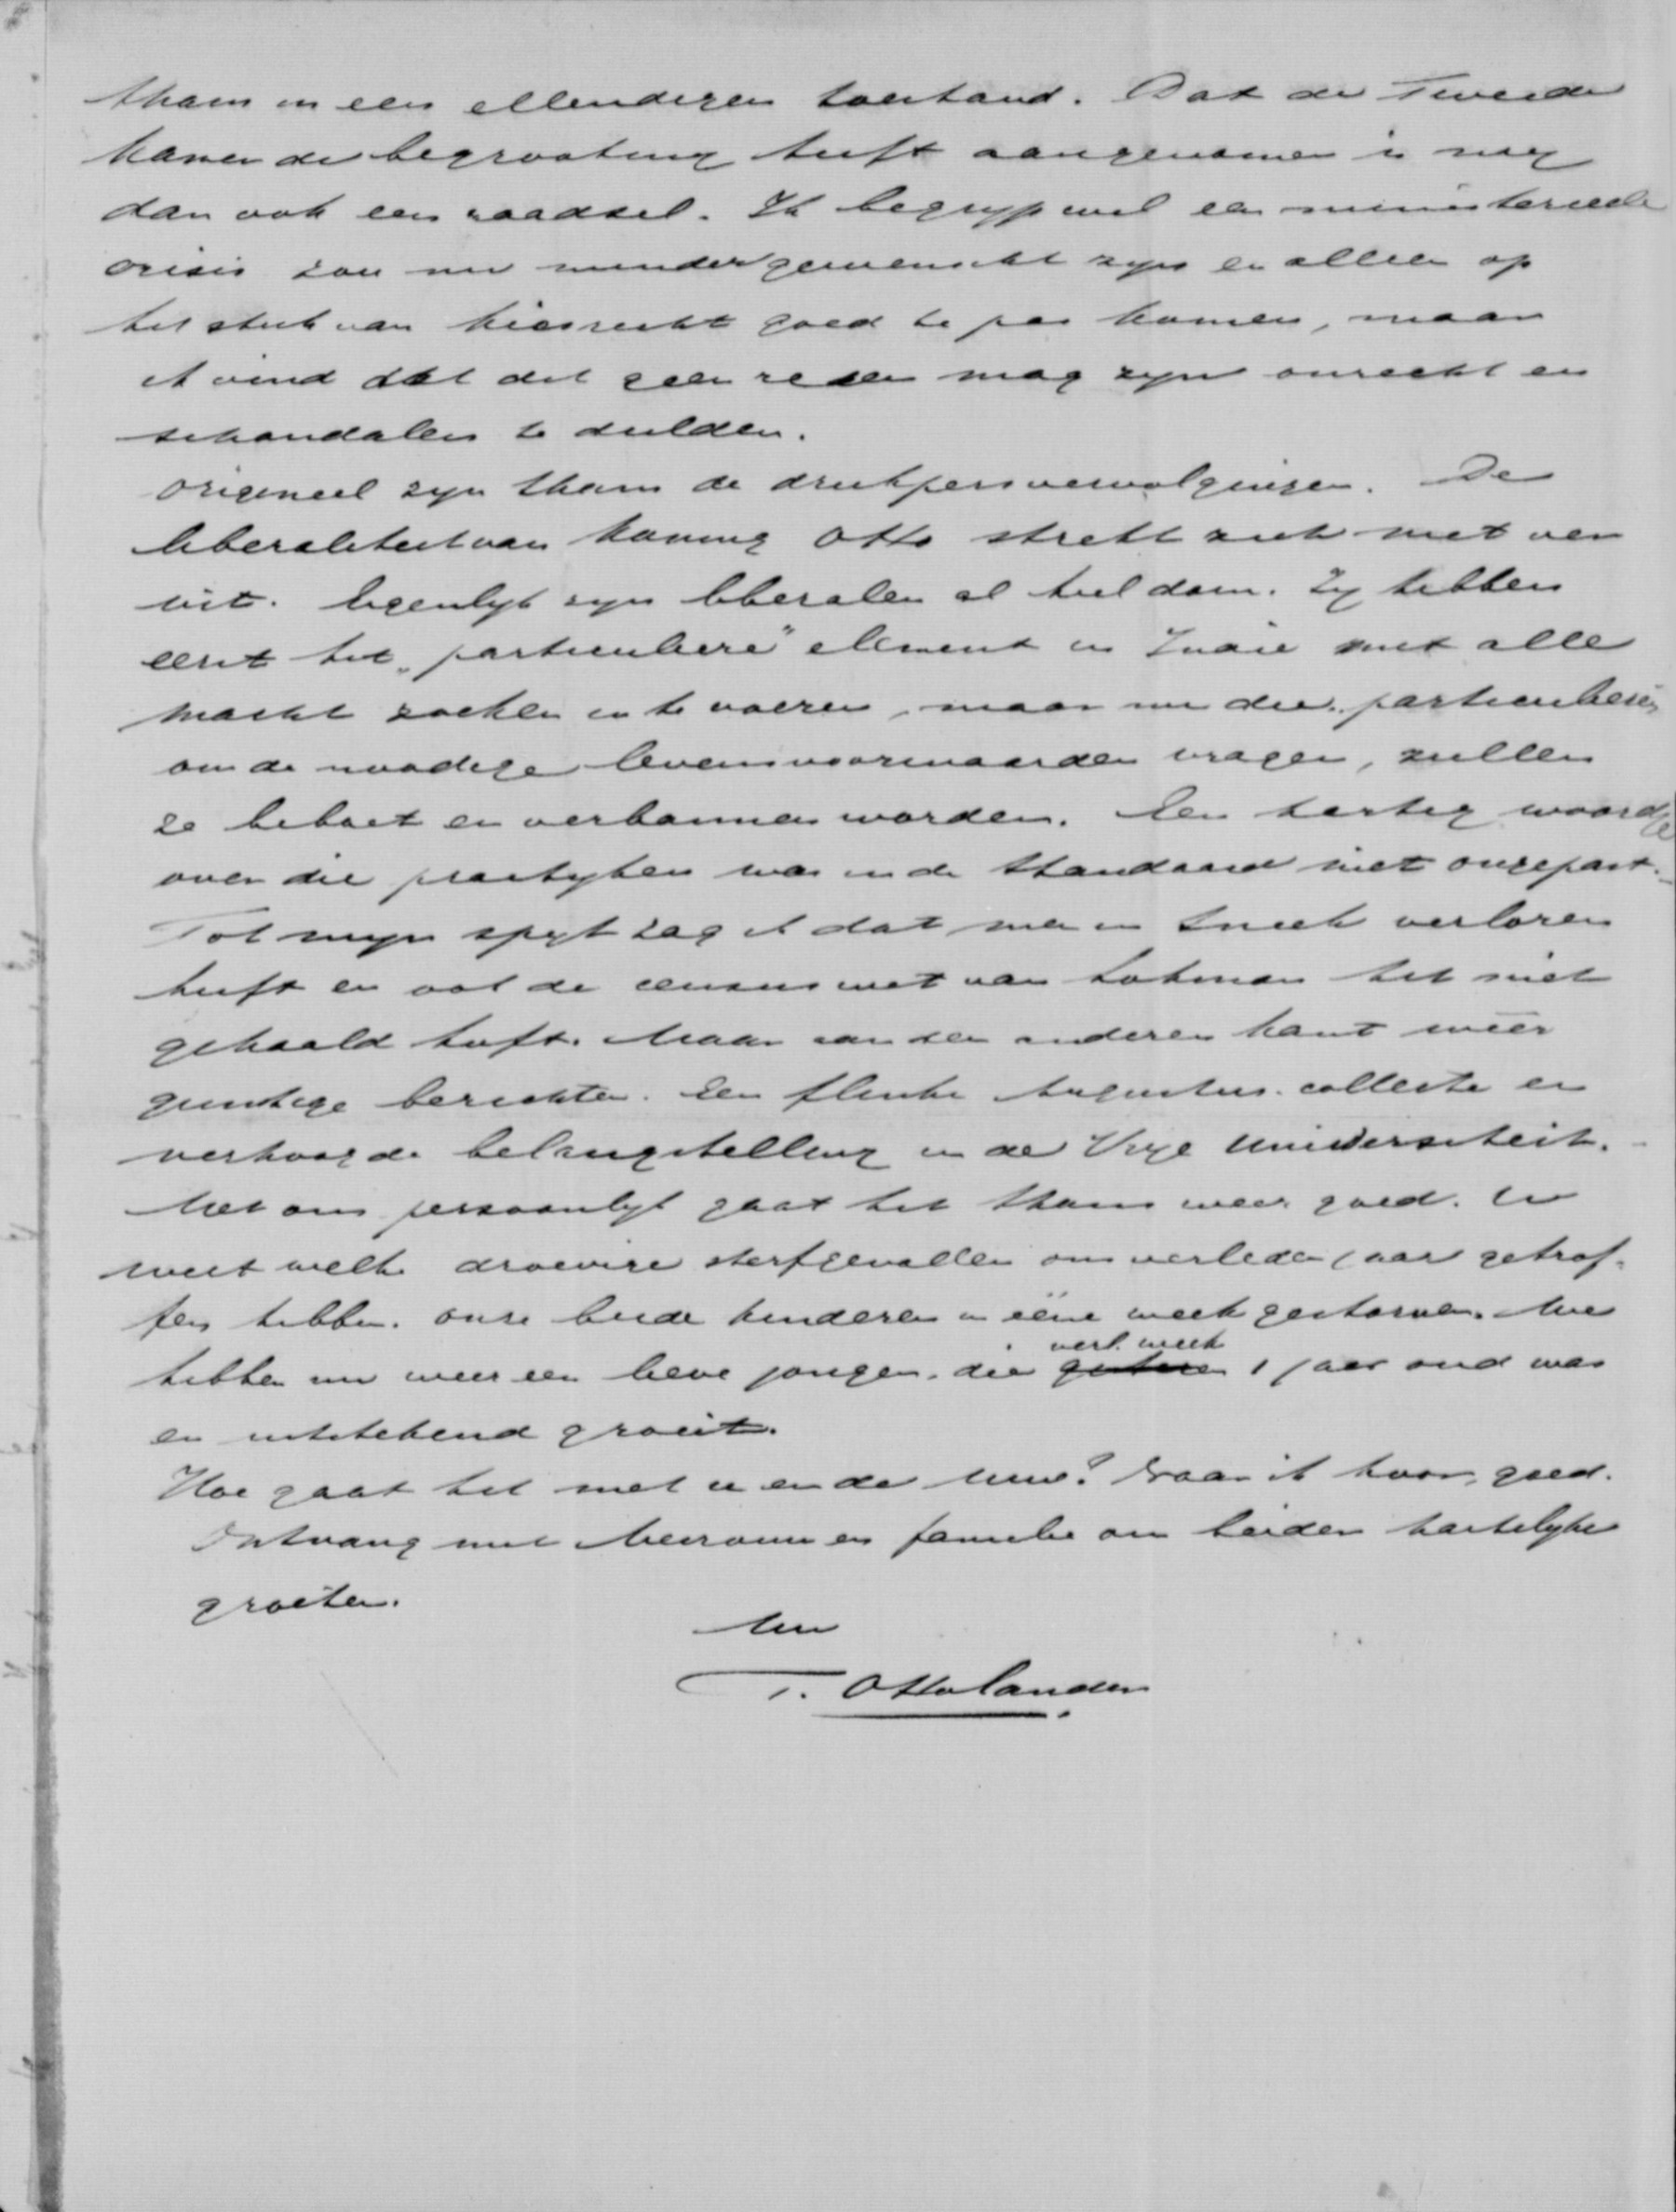 thans in een ellendigen toestand. Dat de Tweede
Kamer de begrooting heeft aangenomen is my
dan ook een raadsel. Ik begryp wel een ministerieele
crisis zou nu minder gewenscht zyn en alleen op
het stuk van kiesrecht goed te pas komen, maar
ik vind dat dit geen reden mag zyn onrecht en
schandalen te dulden.
Origineel zyn thans de drukpersvervolgingen. De
liberaliteit van koning Otto strekt zich niet ver
uit. Eigenlyk zyn liberalen al heel dom. Zy hebben
eerst het „particuliere" element in Indië met alle
macht zoeken in te voeren, maar nu die „particulieren
om de noodige levensvoorwaarden vragen, zullen
ze beboet en verbannen worden. Een hartig woordje
over die practyken was in de Standaard niet ongepast.
Tot myn spyt zag ik dat men in Sneek verloren
heeft en ook de census wet van Lohman het niet
gehaald heeft. Maar aan den anderen kant weer
gunstige berichten. Een flinke Augustus-collecte en
verhoogde belangstelling in de Vrye Universiteit.
Met ons persoonlyk gaat het thans weer goed. U
weet welke droevige sterfgevallen ons verleden jaar getrof-
fen hebben. Onze beide kinderen in ééne week gestorven. We
hebben nu weer een lieve jongen, die gisteren 1 jaar oud was
verl. week
en uitstekend groeit.
Hoe gaat het met u en de uwen? Naar ik hoor, goed.
Ontvang met Mevrouw en familie ons beider hartelyke
groeten.
Uw
T. Ottolander